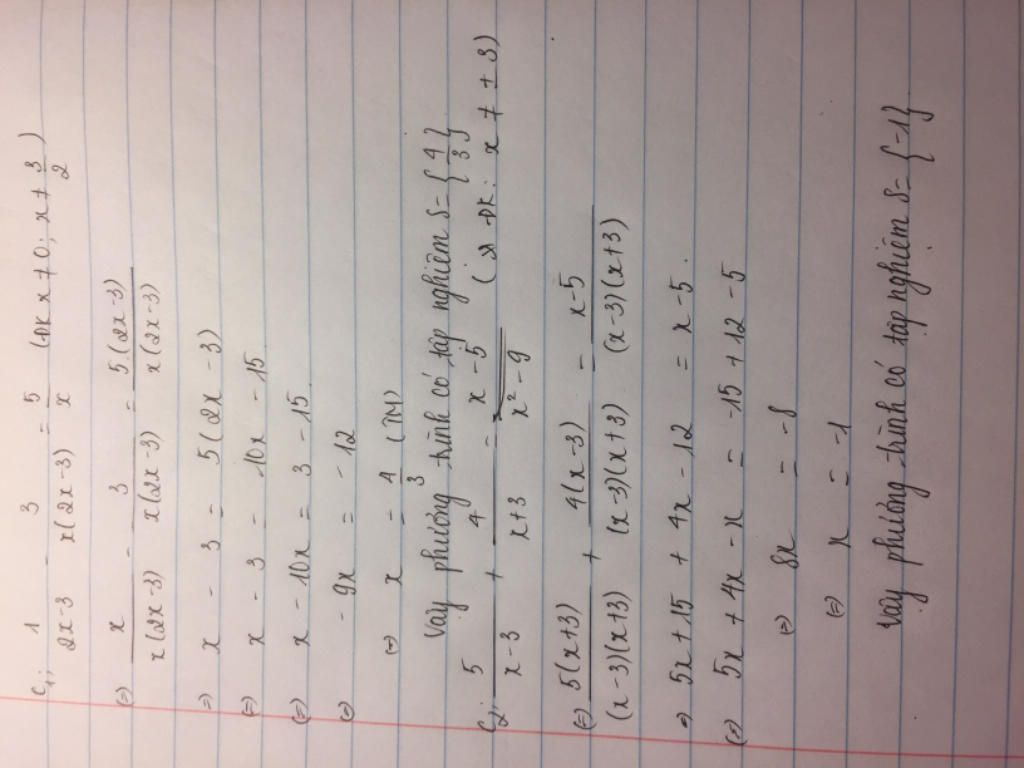 C,; 1/(2x-3) - 3/(x(2x-3)) = 5/x (ĐK x ≠ 0; x ≠ 3/2)
(=) x/(x(2x-3)) - 3/(x(2x-3)) = 5.(2x-3)/(x(2x-3))
=) x - 3 = 5(2x - 3)
(=) x - 3 = 10x - 15
(=) x - 10x = 3 - 15
(=) - 9x = - 12
(=) x = 4/3 (TM)
Vậy phương trình có tập nghiệm S = {4/3}
5/(x-3) + 4/(x+3) = (x-5)/(x²-9) ĐK: x ≠ ± 3)
(=) 5(x+3)/((x-3)(x+3)) + 4(x-3)/((x-3)(x+3)) = (x-5)/((x-3)(x+3))
=) 5x + 15 + 4x - 12 = x - 5.
(=) 5x + 4x - x = -15 + 12 - 5
(=) 8x = - 8
(=) x = -1
Vậy phương trình có tập nghiệm S = {-1}